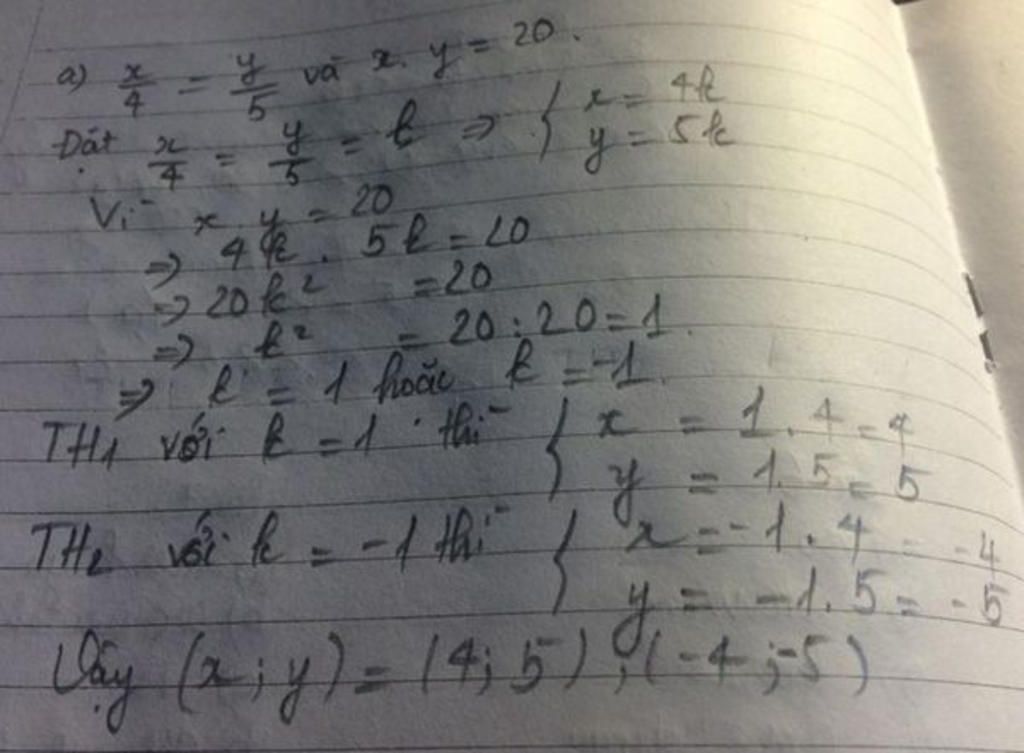 a) x/4 = y/5 và x. y = 20.
Đặt x/4 = y/5 = k => { x = 4k
y = 5k
Vì x. y = 20
=> 4k . 5k = 20
=> 20k² = 20
=> k² = 20 : 20 = 1.
=> k = 1 hoặc k = -1.
TH1 với k = 1 thì { x = 1. 4 = 4
y = 1.5 = 5
TH2 với k = -1 thì { x = -1. 4 = -4
y = -1. 5 = -5
Vậy (x; y) = (4; 5) ; (-4; -5)